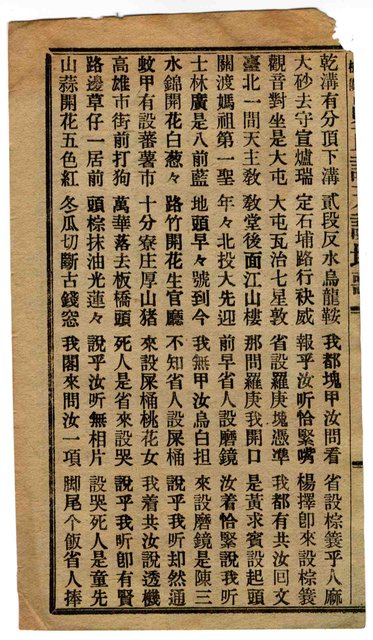 乾溝有分頂下溝 貳段反水烏龍鞍 我都塊甲汝問看 省設棕簑乎人麻
大砂去守宣爐瑞 定石埔路行袂威 報乎汝听恰緊嘴 楊擇卽來設棕簑
觀音對坐是大屯 大屯瓦治七星敦 省設羅庚塊憑準 我都有共汝回文
臺北一問天主敎 敎堂後面江山樓 那問羅庚我開口 是黃求賓設起頭
關渡媽祖第一聖 年々北投大先迎 前早省人設磨鏡 汝着恰緊說我听
士林廣是八前藍 地頭早々號到今 我無甲汝烏白担 來設磨鏡是陳三
水錦開花白葱々 路竹開花生官廳 不知省人設屎桶 說乎我听却然通
蚊甲有設蕃薯市 十分寮庄厚山猪 來設屎桶桃花女 我着共汝說透機
高雄市街前打狗 萬華落去板橋頭 死人是省來設哭 說乎我听卽有賢
路邊草仔一居前 頭棕抹油光蓮々 說乎汝听無相片 設哭死人是童先
山蒜開花五色紅 冬瓜切斷古錢窓 我閣來問汝一項 脚尾个飯省人捧